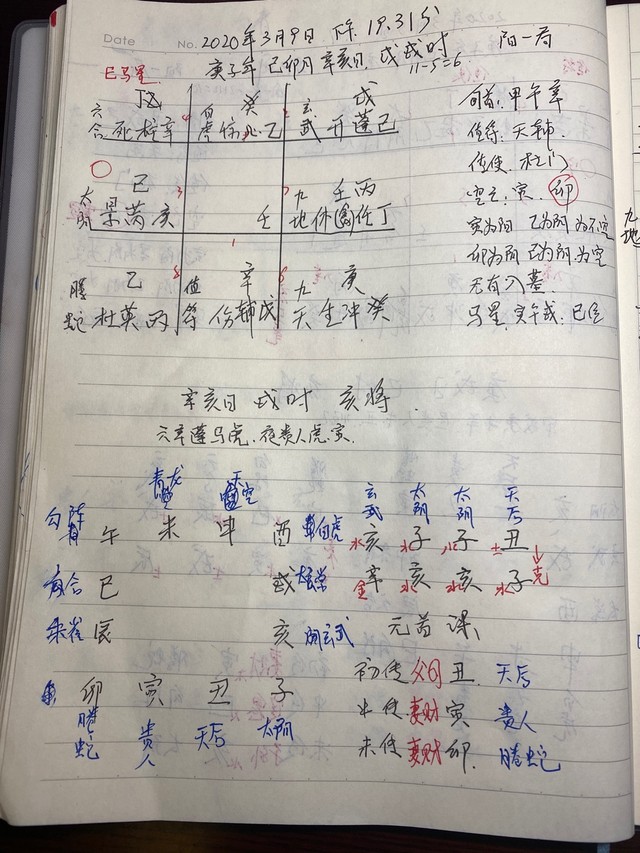 Date No. 2020年3月9日 下午 19.31分
庚子年 己卯月 辛亥日 戊戌时 阳一局
11-5=6
巳马星
癸 玄 戊
六合 死柱辛 白虎惊心乙 武 开蓬己
旬首:甲午辛
值符:天辅.
值使:杜门
己 壬丙
太阴 景芮亥 壬 九地休禽任丁
空亡:寅.卯
寅为阳 乙为阴 为不空
卯为阴 己为阴 为空
乙 值 辛 九 亥
螣蛇 杜英丙 符 伤辅戊 天 生冲癸
无有入墓.
马星:寅午戌:巳
辛亥日 戌时 亥将.
六辛逢马虎.夜贵人虎.寅.
青龙 天空 玄武 太阴 太阴 天后
勾陈 午 未 申 酉 白虎 水亥 水子 水子 土丑
克
六合 巳 戌 金辛 水亥 水亥 水子
朱雀 辰 亥 玄武 元首课
卯 寅 丑 子 初传 父母 丑 天后
螣蛇 贵人 天后 太阴 中传 妻财 寅 贵人
末传 妻财 卯. 螣蛇
九地